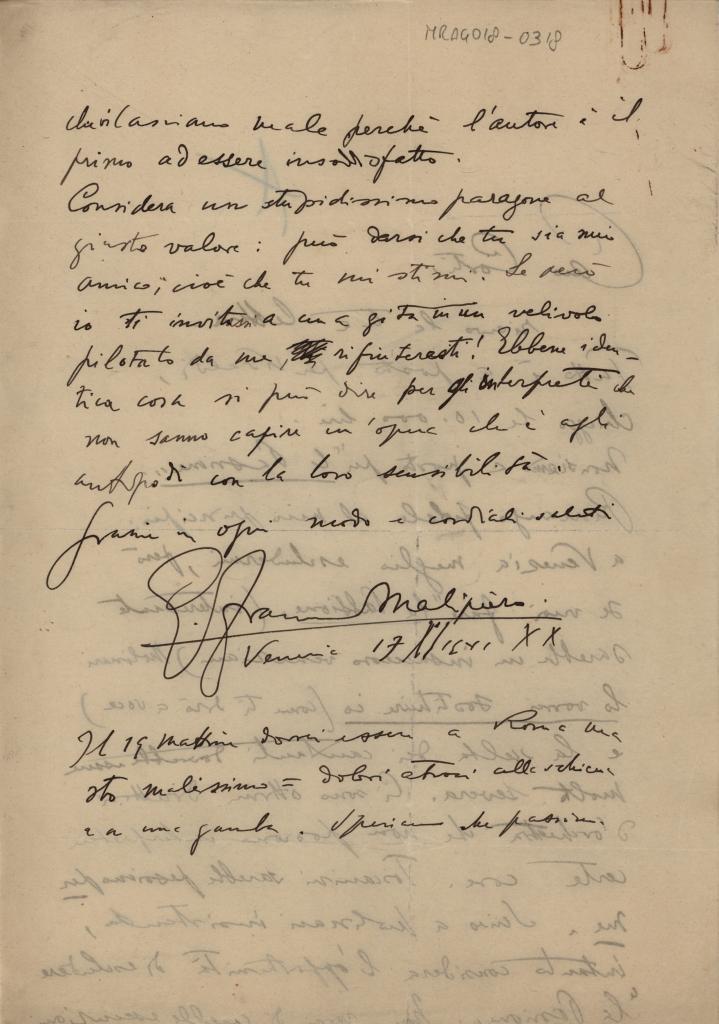 MRAG018-0318
male perchè l'autore è il
primo ad essere insoddisfatto.
Considera un stupidissimo paragone al
giusto valore: può darsi che tu sia mio
amico, cioè che tu mi stimi. Se però
io ti invitassi a una gita in un velivolo
pilotato da me, rifiuteresti! Ebbene iden-
tica cosa si può dire per gli interpreti che
non sanno capire un'opera che è agli
antipodi con la loro sensibilità.
Grazie in ogni modo e cordiali saluti
G. Franco Malipiero.
Venezia 17 XX
Il 19 mattina dovrei essere a Roma ma
sto malissimo = dolori atroci alla schiena
e a una gamba. Speriamo che passino.